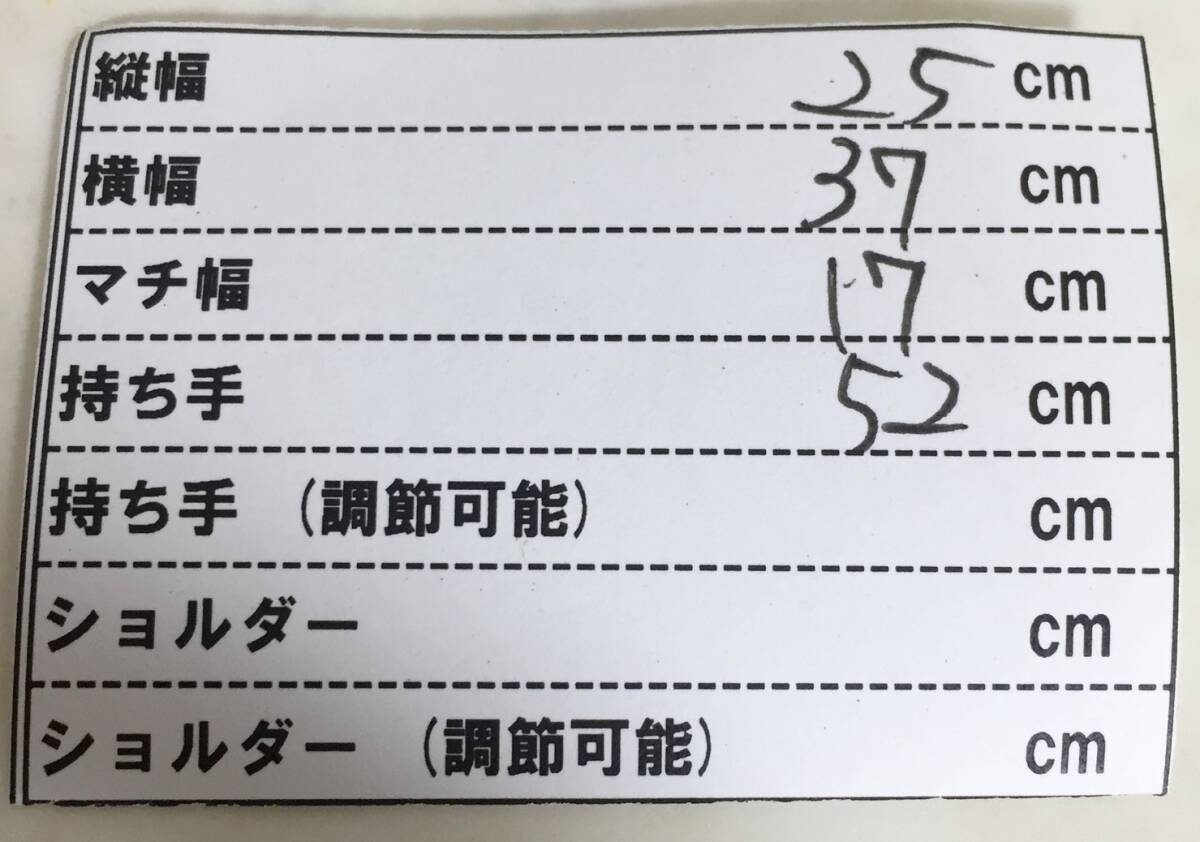 縦幅 25 cm
横幅 37 cm
マチ幅 17 cm
持ち手 52 cm
持ち手 (調節可能) cm
ショルダー cm
ショルダー (調節可能) cm